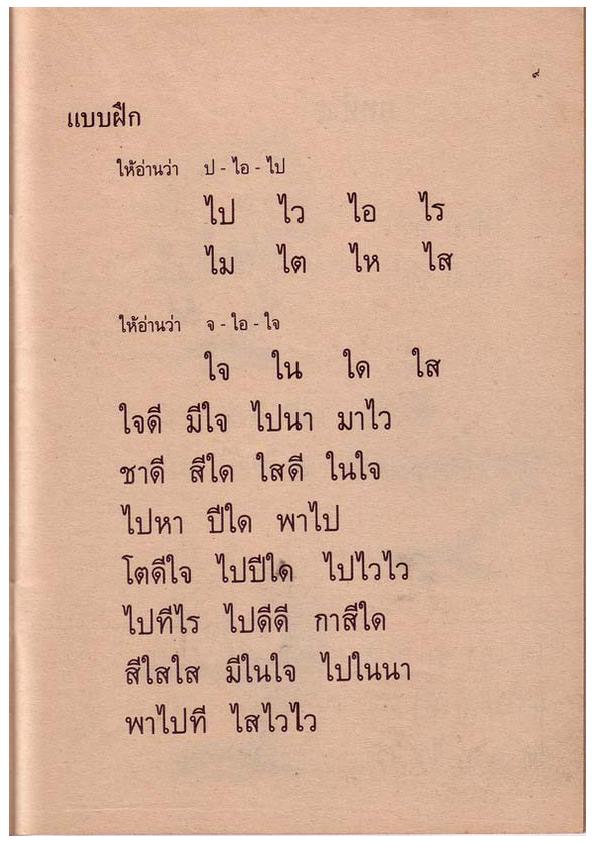 ๙
แบบฝึก
ให้อ่านว่า ป - ไอ - ไป
ไป ไว ไอ ไร
ไม ไต ไห ไส
ให้อ่านว่า จ - ไอ - ใจ
ใจ ใน ใด ใส
ใจดี มีใจ ไปนา มาไว
ชาดี สีใด ใสดี ในใจ
ไปหา ปีใด พาไป
โตดีใจ ไปปีใด ไปไวไว
ไปทีไร ไปดีดี กาสีใด
สีใสใส มีในใจ ไปในนา
พาไปที ไสไวไว